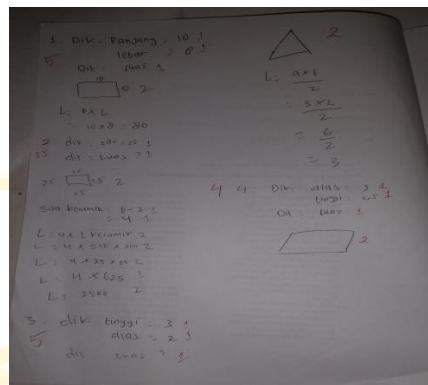 1. Dik: Pandang: 10 1
5 lebar = 8 1
Dit: luas 1
10
8 2
L: P x L
= 10 x 8 = 80
2. dik: sisi = 25 1
15 dit: Luas ? 1
25 25 2
25
sisa keramik: 6 - 2 1
= 4 1
L: 4 x L keramik 2
L: 4 x sisi x sisi 2
L: 4 x 25 x 25 2
L: 4 x 625
L: 2500 2
3. dik tinggi: 3 1
5 alas = 2 1
dit luas ? 1
2
L: a x t
2
= 3 x 2
2
= 6
2
= 3
4 4. Dik: alas: 3 1
tinggi: 1,5 1
Dit: luas 1
2